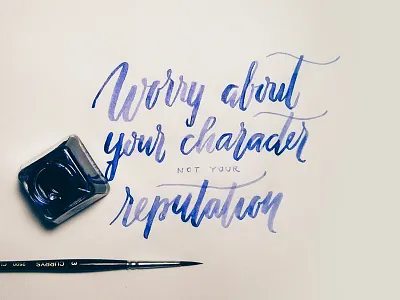 Worry about
your character
NOT YOUR
reputation
CURRYS